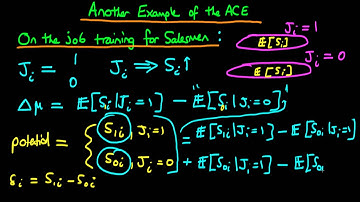 Another Example of the ACE
On the job training for Salesmen :
J_i = 1
E[S_i]
J_i = 0
E[S_i]
J_i = 1
0
J_i ⟹ S_i ↑
Δμ = E[S_i|J_i=1] - "E[S_0i|J_i=0]"
potential = { S_1i, J_i=1
S_0i, J_i=0 }
= E[S_1i|J_i=1] - E[S_0i|J_i=1]
+ E[S_0i|J_i=1] - E[S_0i
δ_i = S_1i - S_0i